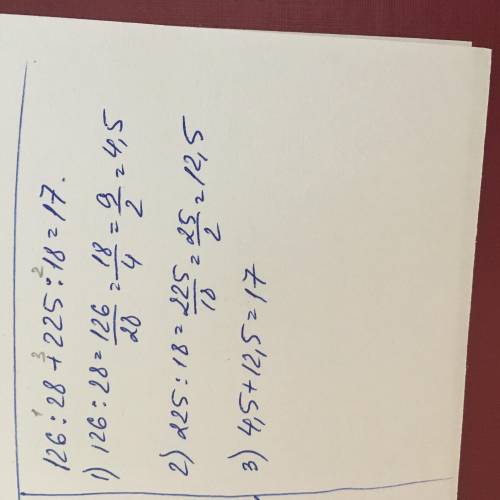 126 : 28 + 225 : 18 = 17.
1) 126 : 28 = 126/28 = 18/4 = 9/2 = 4,5
2) 225 : 18 = 225/18 = 25/2 = 12,5
3) 4,5 + 12,5 = 17